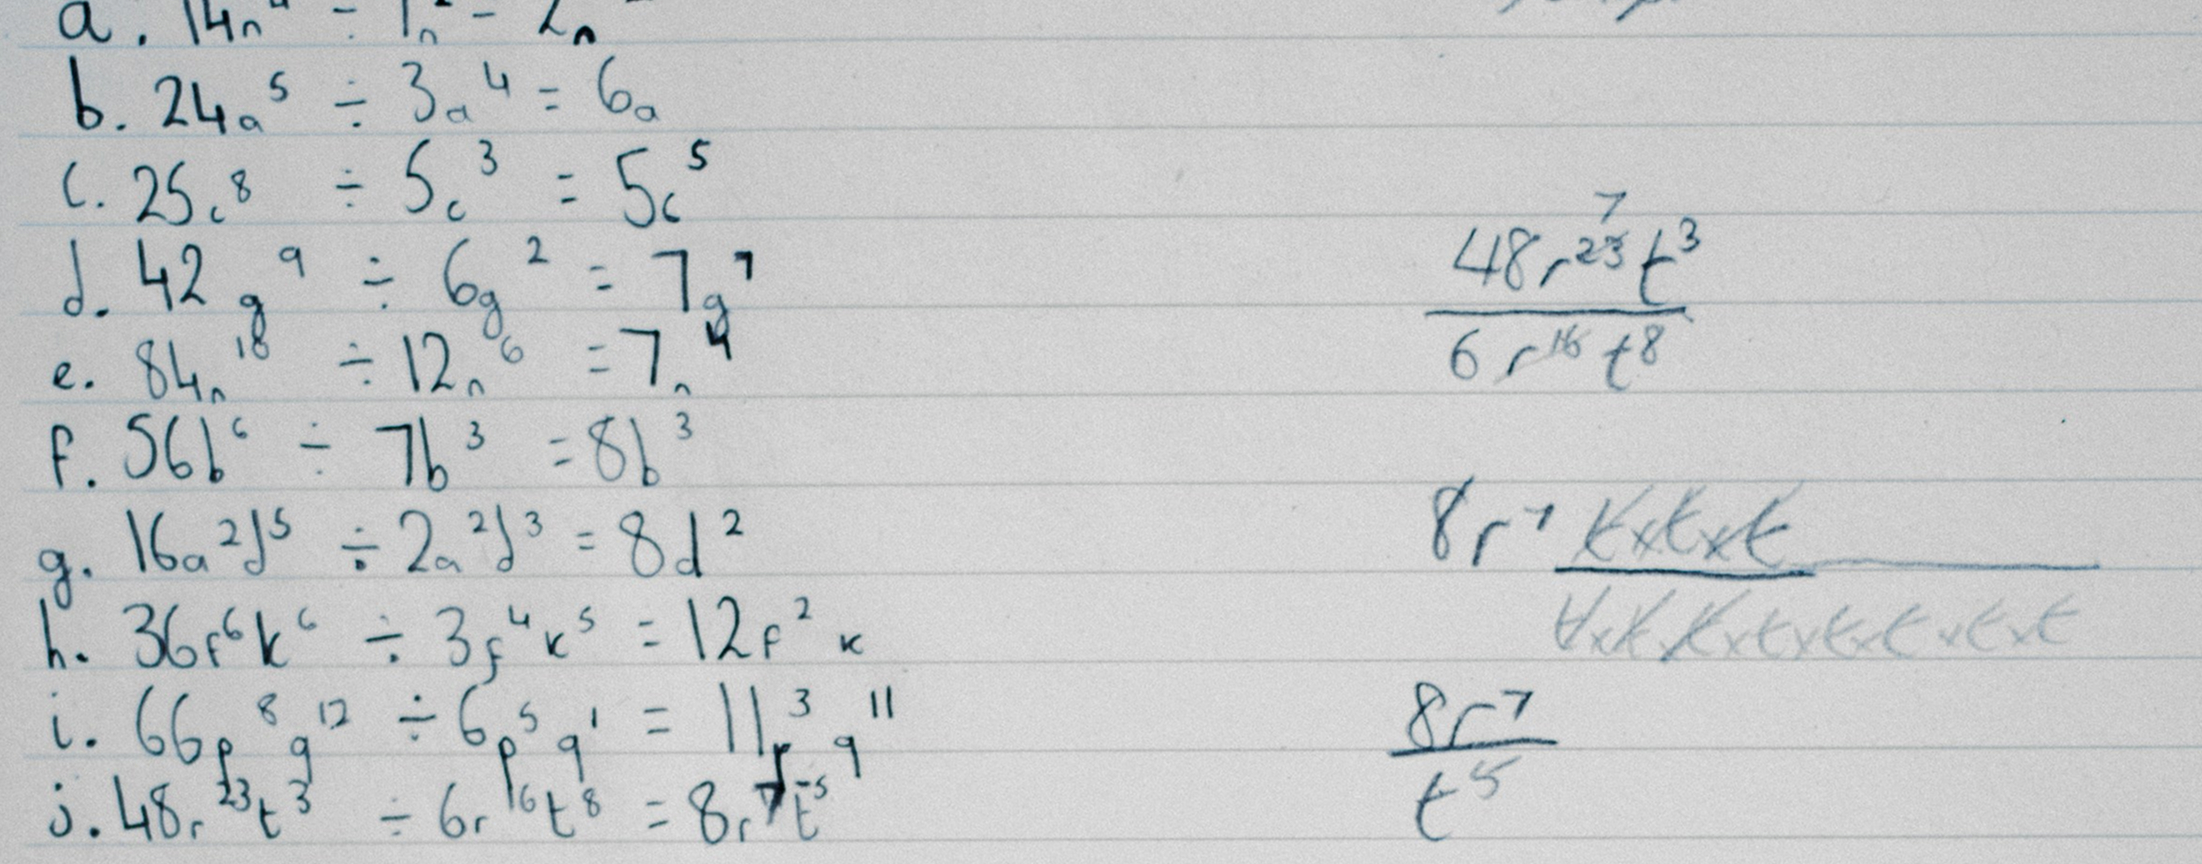 b. 24a⁵ ÷ 3a⁴ = 6a
c. 25c⁸ ÷ 5c³ = 5c⁵
d. 42g⁹ ÷ 6g² = 7g⁷
e. 84n¹⁰ ÷ 12n⁶ = 7n⁴
f. 56b⁶ ÷ 7b³ = 8b³
g. 16a²d⁵ ÷ 2a²d³ = 8d²
h. 36f⁶k⁶ ÷ 3f⁴k⁵ = 12f²k
i. 66p⁸q¹² ÷ 6p⁵q¹ = 11p³q¹¹
j. 48r²³t³ ÷ 6r¹⁶t⁸ = 8r⁷t⁻⁵
7
48r²³t³
6r¹⁶t⁸
8r⁷ t×t×t
t×t×t×t×t×t×t×t
8r⁷
t⁵